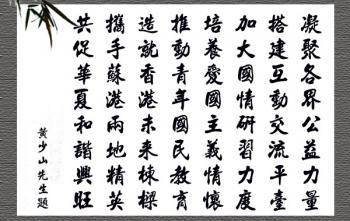 凝聚各界公益力量
搭建互動交流平臺
加大國情研習力度
培養愛國主義情懷
推動青年國民教育
造就香港未來棟樑
攜手蘇港兩地精英
共促華夏和諧興旺
黃少山先生題